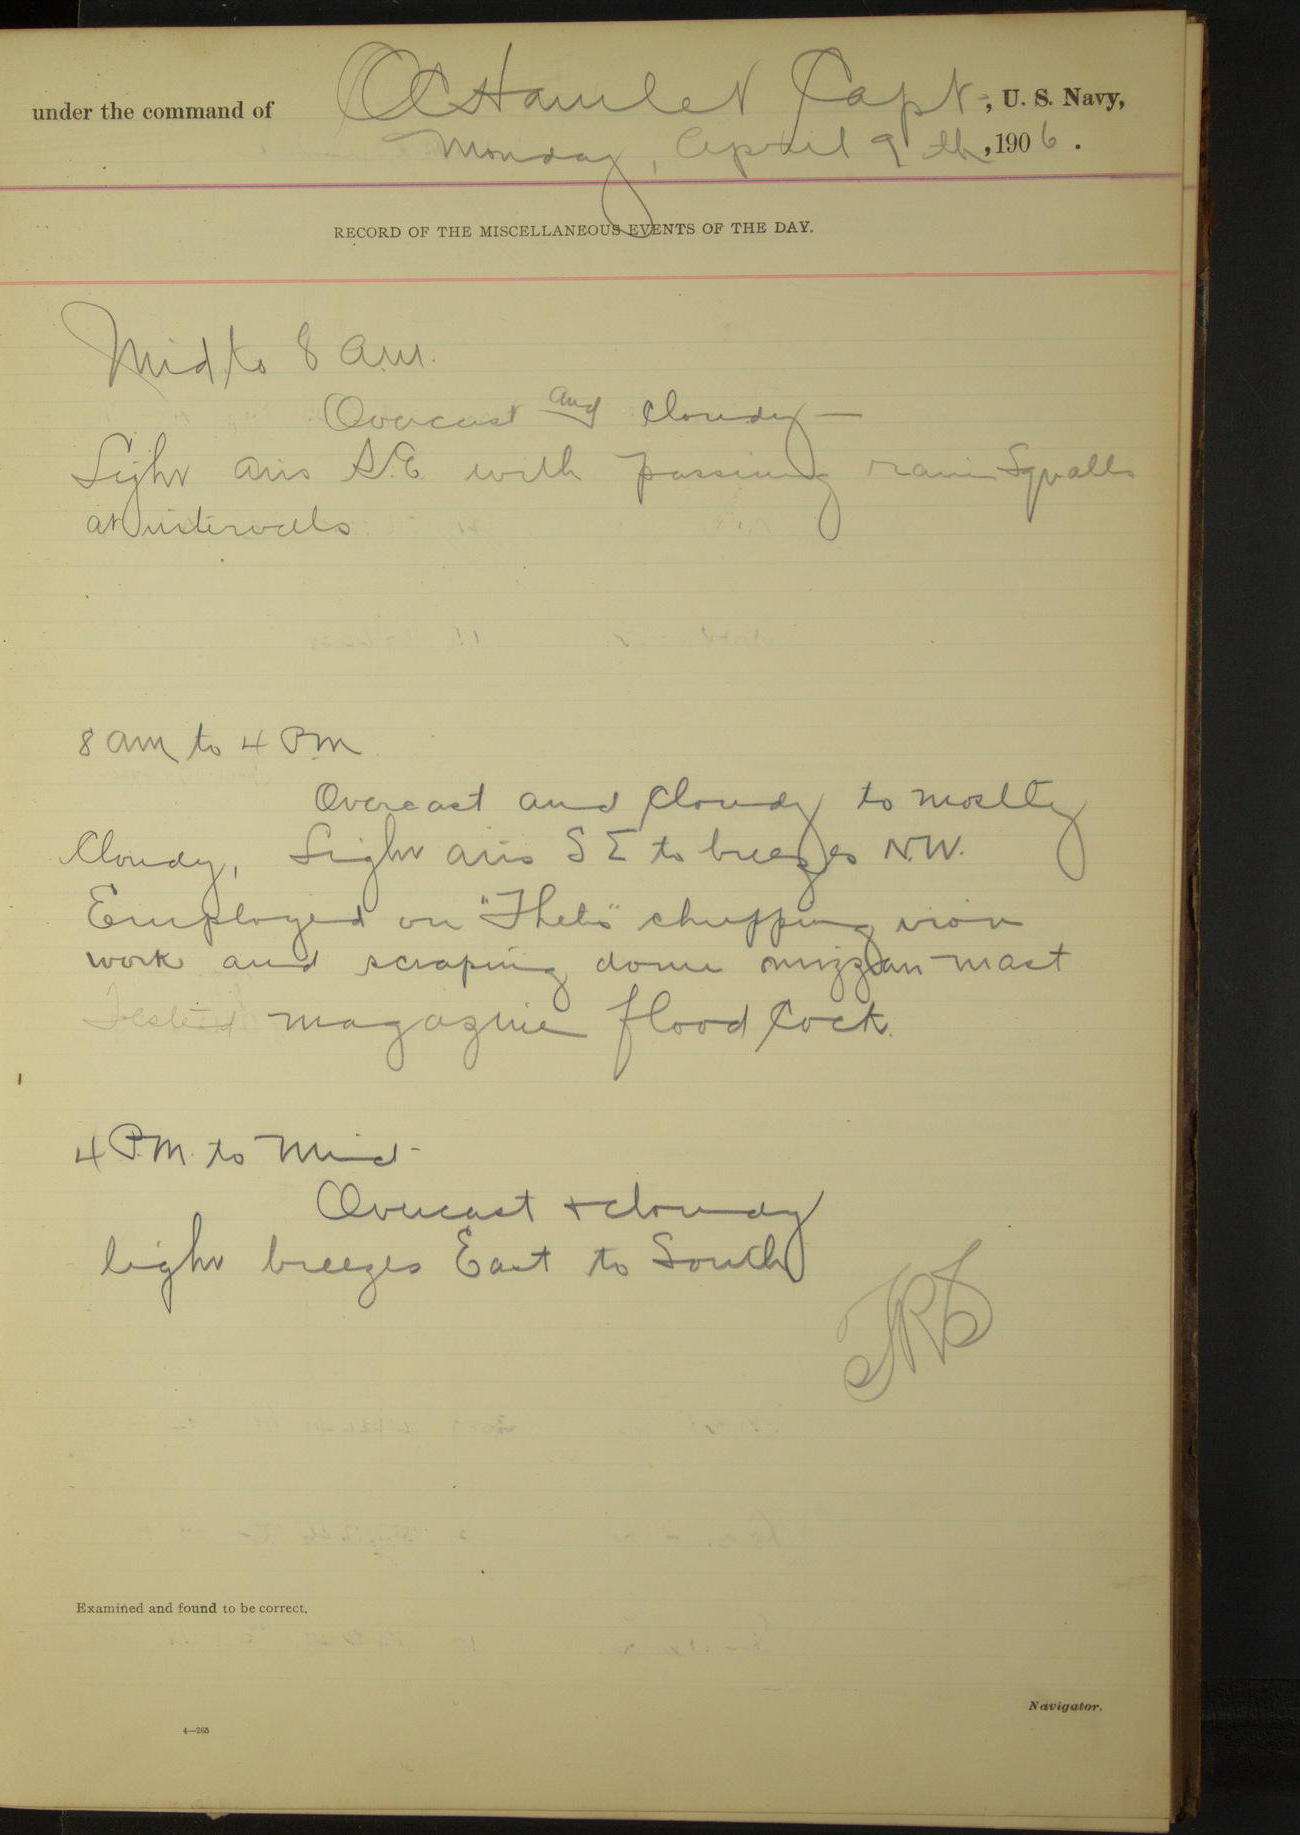 under the command of O C Hamlet Capt., U. S. Navy,
Monday, April 9th, 1906.
RECORD OF THE MISCELLANEOUS EVENTS OF THE DAY.
Mid to 8 am.
Overcast and cloudy —
Light airs S.E. with passing rain squalls
at intervals
8 am to 4 PM
Overcast and cloudy to mostly
cloudy, Light airs S E to breezes N.W.
Employed on "Thetis" chipping iron
work and scraping down mizzen mast
Tested magazine flood cock.
4 P.M. to Mid-
Overcast + cloudy
light breezes East to South
Examined and found to be correct.
Navigator.
4—265